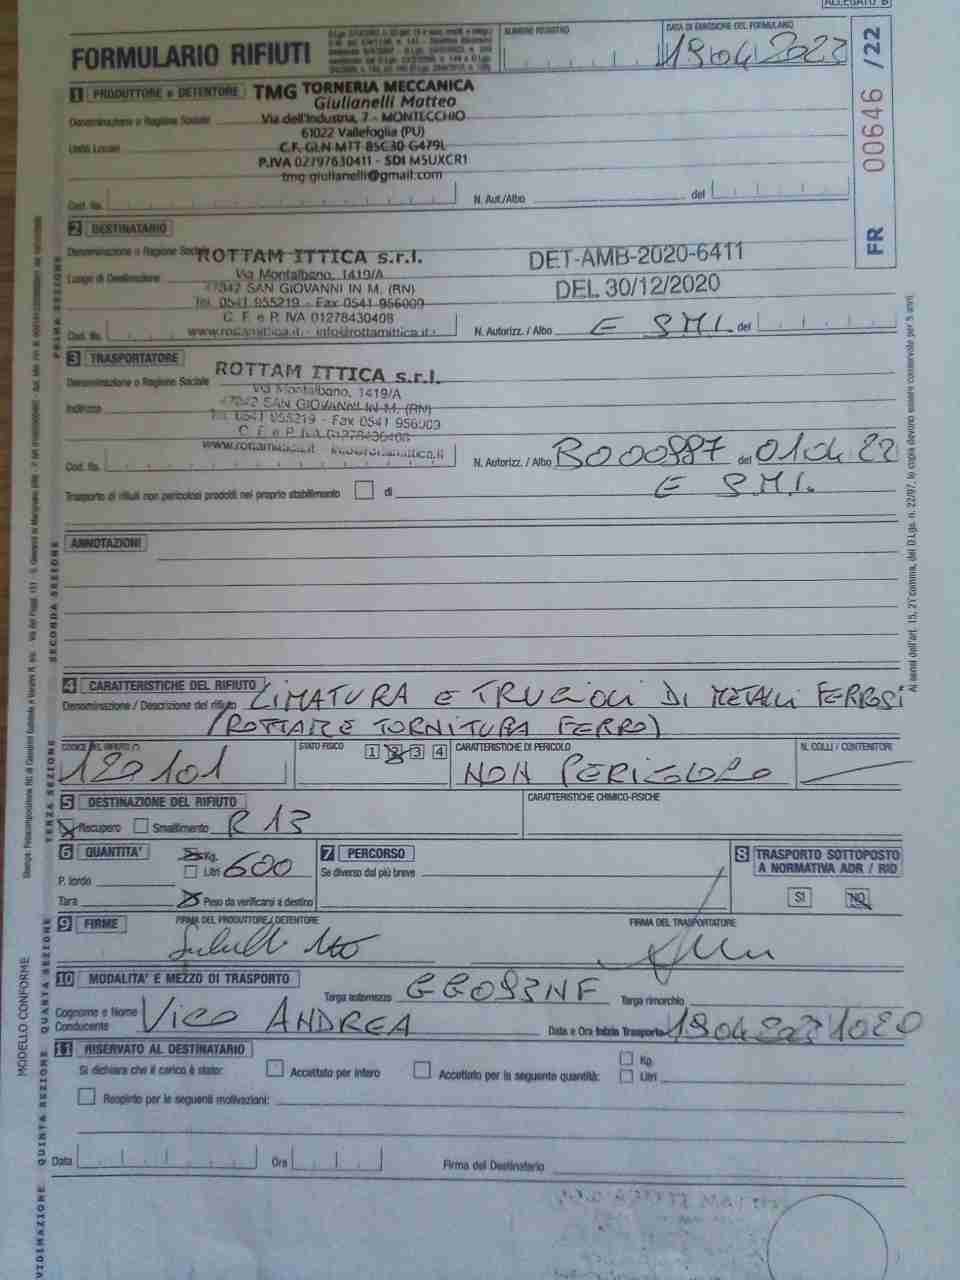 ALLEGATO B
FORMULARIO RIFIUTI
NUMERO REGISTRO
DATA DI EMISSIONE DEL FORMULARIO
19 04 2023
FR 00646 /22
1 PRODUTTORE e DETENTORE
TMG TORNERIA MECCANICA
Giulianelli Matteo
Denominazione o Ragione Sociale
Via dell'Industria, 7 - MONTECCHIO
61022 Vallefoglia (PU)
Unità Locale
C.F. GLN MTT 85C30 G479L
P.IVA 02797630411 - SDI M5UXCR1
tmg giulianelli@gmail.com
Cod. fis.
N. Aut./Albo
del
2 DESTINATARIO
Denominazione o Ragione Sociale
ROTTAM ITTICA s.r.l.
DET-AMB-2020-6411
Luogo di Destinazione
Via Montalbano, 1419/A
47842 SAN GIOVANNI IN M. (RN)
DEL 30/12/2020
Tel. 0541 955219 - Fax 0541 956009
C. F. e P. IVA 01278430408
Cod. fis.
www.rottamittica.it - info@rottamittica.it
N. Autorizz. / Albo
E S.M.I.
del
3 TRASPORTATORE
ROTTAM ITTICA s.r.l.
Denominazione o Ragione Sociale
Via Montalbano, 1419/A
Indirizzo
47842 SAN GIOVANNI IN M. (RN)
Tel. 0541 955219 - Fax 0541 956009
C. F. e P. IVA 01278430408
www.rottamittica.it info@rottamittica.it
Cod. fis.
N. Autorizz. / Albo
B000887 del 01 04 22
Trasporto di rifiuti non pericolosi prodotti nel proprio stabilimento
di
E S.M.I.
ANNOTAZIONI
4 CARATTERISTICHE DEL RIFIUTO
Denominazione / Descrizione del rifiuto
LIMATURA E TRUCIOLI DI METALLI FERROSI
(ROTTAME TORNITURA FERRO)
CODICE DEL RIFIUTO (*)
120101
STATO FISICO
1 2 3 4
CARATTERISTICHE DI PERICOLO
NON PERICOLOSO
N. COLLI / CONTENITORI
5 DESTINAZIONE DEL RIFIUTO
CARATTERISTICHE CHIMICO-FISICHE
Recupero
Smaltimento
R 13
6 QUANTITA'
Kg.
Litri
600
P. lordo
Tara
Peso da verificarsi a destino
7 PERCORSO
Se diverso dal più breve
8 TRASPORTO SOTTOPOSTO
A NORMATIVA ADR / RID
SI
NO
9 FIRME
FIRMA DEL PRODUTTORE / DETENTORE
FIRMA DEL TRASPORTATORE
10 MODALITA' E MEZZO DI TRASPORTO
Targa automezzo
GG093NF
Targa rimorchio
Cognome e Nome
Conducente
VICO ANDREA
Data e Ora Inizio Trasporto
19 04 2023 1020
11 RISERVATO AL DESTINATARIO
Si dichiara che il carico è stato:
Accettato per intero
Accettato per la seguente quantità:
Kg.
Litri
Respinto per le seguenti motivazioni:
Data
Ora
Firma del Destinatario
PRIMA SEZIONE
SECONDA SEZIONE
TERZA SEZIONE
QUARTA SEZIONE
QUINTA SEZIONE
VIDIMAZIONE
MODELLO CONFORME